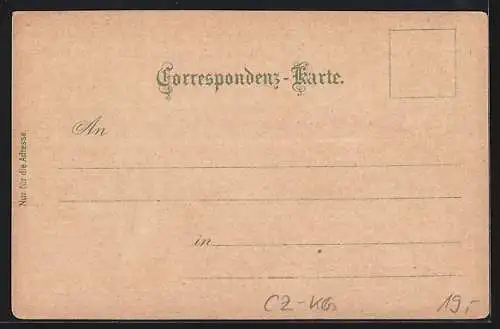 Correspondenz-Karte.
An
in
Nur für die Adresse.
19,-